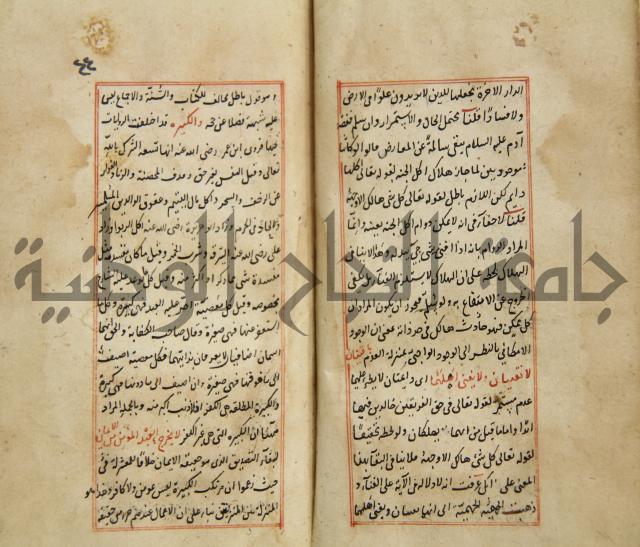 الدار الآخرة نجعلها للذين لا يريدون علوا في الارض
ولا فسادا قلنا يحتمل الحال والاستمرار ولو سلم فقصة
آدم عليه السلام تبقى سالمة عن المعارض قالوا لو كانتا
موجودتين لما جاز هلاك اكل الجنة لقوله تعالى اكلها
دائم لكن اللازم باطل لقوله تعالى كل شي هالك الا وجهه
قلنا لا خفاء في انه لا يمكن دوام اكل الجنة بعينه وانما
المراد الدوام بانه اذا فني شي جي ببدله وهذا لا ينافي
الهلاك لحظة على ان الهلاك لا يستلزم الفناء بل يكفي
الخروج عن الانتفاع به ولو سلم فيجوز ان يكون المراد ان
كل ممكن فهو هالك في حد ذاته بمعنى ان الوجود
الامكاني بالنظر الى الوجود الواجبي بمنزلة العدم باقيتان
لا تفنيان ولا يفنى اهلهما اي دائمتان لا يطرء عليهما
عدم مستمر لقوله تعالى في حق الفريقين خالدين فيها
ابدا واما ما قيل من انهما يهلكان ولو لحظة تحقيقا
لقوله تعالى كل شي هالك الا وجهه فلا ينافي البقاء بهذا
المعنى على انك عرفت انه لا دلالة في الآية على الفناء و
ذهبت الجهمية الى انهما يفنيان ويفنى اهلهما
٤٤
وهو قول باطل مخالف للكتاب والسنة والاجماع ليس
عليه شبهة فضلا عن حجة والكبيرة قد اختلفت الروايات
فيها فروى ابن عمر رضي الله عنه انها تسعة الشرك بالله
تعالى وقتل النفس بغير حق وقذف المحصنة والزنا والفرار
عن الزحف والسحر واكل مال اليتيم وعقوق الوالدين المسلمين
والالحاد في الحرم وزاد ابو هريرة رضي الله عنه اكل الربوا وزاد
علي رضي الله عنه السرقة وشرب الخمر وقيل ما كان مفسدته مثل
مفسدة شي مما ذكر او اكثر منه وقيل كل ما توعد عليه الشارع
بخصوصه وقيل كل معصية اصر عليه العبد فهي كبيرة وكل ما
استغفر عنها فهي صغيرة وقال صاحب الكفاية والحق انهما
اسمان اضافيان لا يعرفان بذاتيهما فكل معصية اضيفت
الى ما فوقها فهي صغيرة وان اضيف الى ما دونها فهي كبيرة
والكبيرة المطلقة هي الكفر اذ لا ذنب اكبر منه وبالجملة المراد
ههنا ان الكبيرة التي هي غير الكفر لا يخرج العبد المؤمن من الايمان
لبقاء التصديق الذي هو حقيقة الايمان خلافا للمعتزلة
حيث زعموا ان مرتكب الكبيرة ليس بمؤمن ولا كافر وهذا هو
المنزلة بين المنزلتين بناء على ان الاعمال عندهم جزء من حقيقة
جامعة النجاح الوطنية